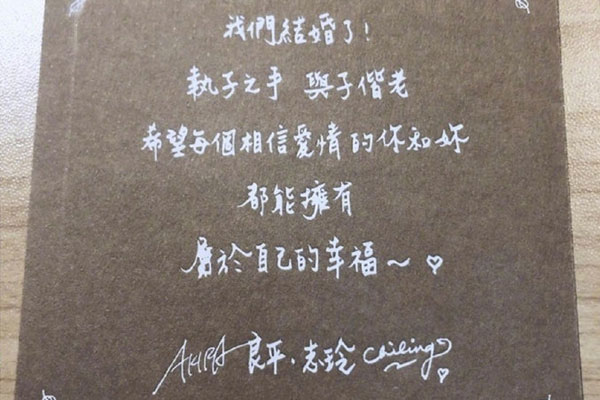 我們結婚了!
執子之手 與子偕老
希望每個相信愛情的你和妳
都能擁有
屬於自己的幸福～♡
AKIRA 良平．志玲 Chiling♡